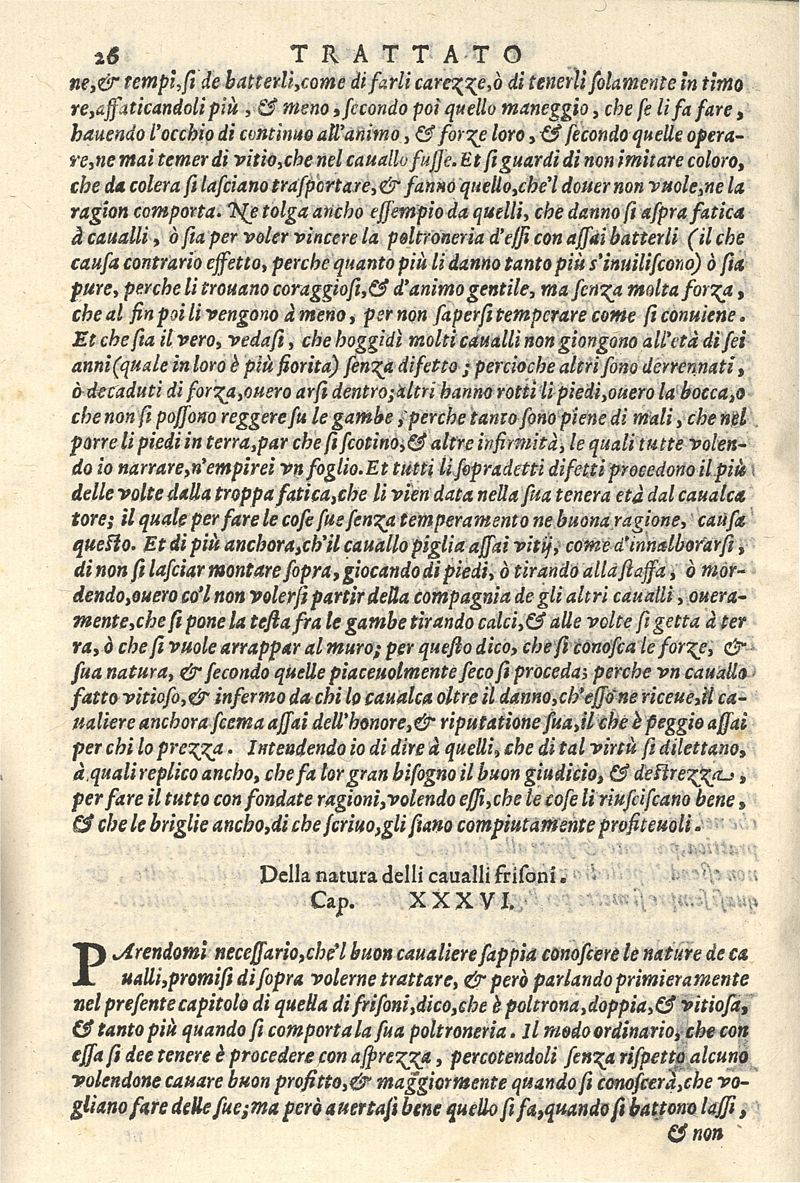 26 TRATTATO
ne,& tempi,si de batterli,come di farli carezze,ò di tenerli solamente in timo
re,affaticandoli più, & meno, secondo poi quello maneggio, che se li fa fare,
hauendo l'occhio di continuo all'animo, & forze loro, & secondo quelle opera-
re,ne mai temer di vitio,che nel cauallo fusse. Et si guardi di non imitare coloro,
che da colera si lasciano trasportare,& fanno quello,che'l douer non vuole,ne la
ragion comporta. Ne tolga ancho essempio da quelli, che danno si aspra fatica
à caualli, ò sia per voler vincere la poltroneria d'essi con assai batterli (il che
causa contrario effetto, perche quanto più li danno tanto più s'inuiliscono) ò sia
pure, perche li trouano coraggiosi,& d'animo gentile, ma senza molta forza,
che al fin poi li vengono à meno, per non sapersi temperare come si conuiene.
Et che sia il vero, vedasi, che hoggidì molti caualli non giongono all'età di sei
anni(quale in loro è più fiorita) senza difetto; percioche altri sono derrennati,
ò decaduti di forza,ouero arsi dentro;altri hanno rotti li piedi,ouero la bocca,o
che non si possono reggere su le gambe; perche tanto sono piene di mali, che nel
porre li piedi in terra,par che si scotino,& altre infirmità, le quali tutte volen-
do io narrare,n'empirei vn foglio.Et tutti li sopradetti difetti procedono il più
delle volte dalla troppa fatica,che li vien data nella sua tenera età dal caualca
tore; il quale per fare le cose sue senza temperamento ne buona ragione, causa
questo. Et di più anchora,ch'il cauallo piglia assai vitij, come d'innalborarsi,
di non si lasciar montare sopra, giocando di piedi, ò tirando alla staffa, ò mor-
dendo,ouero co'l non volersi partir della compagnia de gli altri caualli, ouera-
mente,che si pone la testa fra le gambe tirando calci,& alle volte si getta à ter
ra, ò che si vuole arrappar al muro; per questo dico, che si conosca le forze, &
sua natura, & secondo quelle piaceuolmente seco si proceda; perche vn cauallo
fatto vitioso,& infermo da chi lo caualca oltre il danno,ch'esso ne riceue,il ca-
ualiere anchora scema assai dell'honore,& riputatione sua,il che è peggio assai
per chi lo prezza. Intendendo io di dire à quelli, che di tal virtù si dilettano,
à quali replico ancho, che fa lor gran bisogno il buon giudicio, & destrezza,
per fare il tutto con fondate ragioni,volendo essi,che le cose li riusciscano bene,
& che le briglie ancho,di che scriuo,gli siano compiutamente profiteuoli.
Della natura delli caualli frisoni.
Cap. XXXVI.
PArendomi necessario,che'l buon caualiere sappia conoscere le nature de ca
ualli,promisi di sopra volerne trattare, & però parlando primieramente
nel presente capitolo di quella di frisoni,dico,che è poltrona,doppia,& vitiosa,
& tanto più quando si comporta la sua poltroneria. Il modo ordinario, che con
essa si dee tenere è procedere con asprezza, percotendoli senza rispetto alcuno
volendone cauare buon profitto,& maggiormente quando si conoscerà,che vo-
gliano fare delle sue;ma però auertasi bene quello si fa,quando si battono lassi,
& non